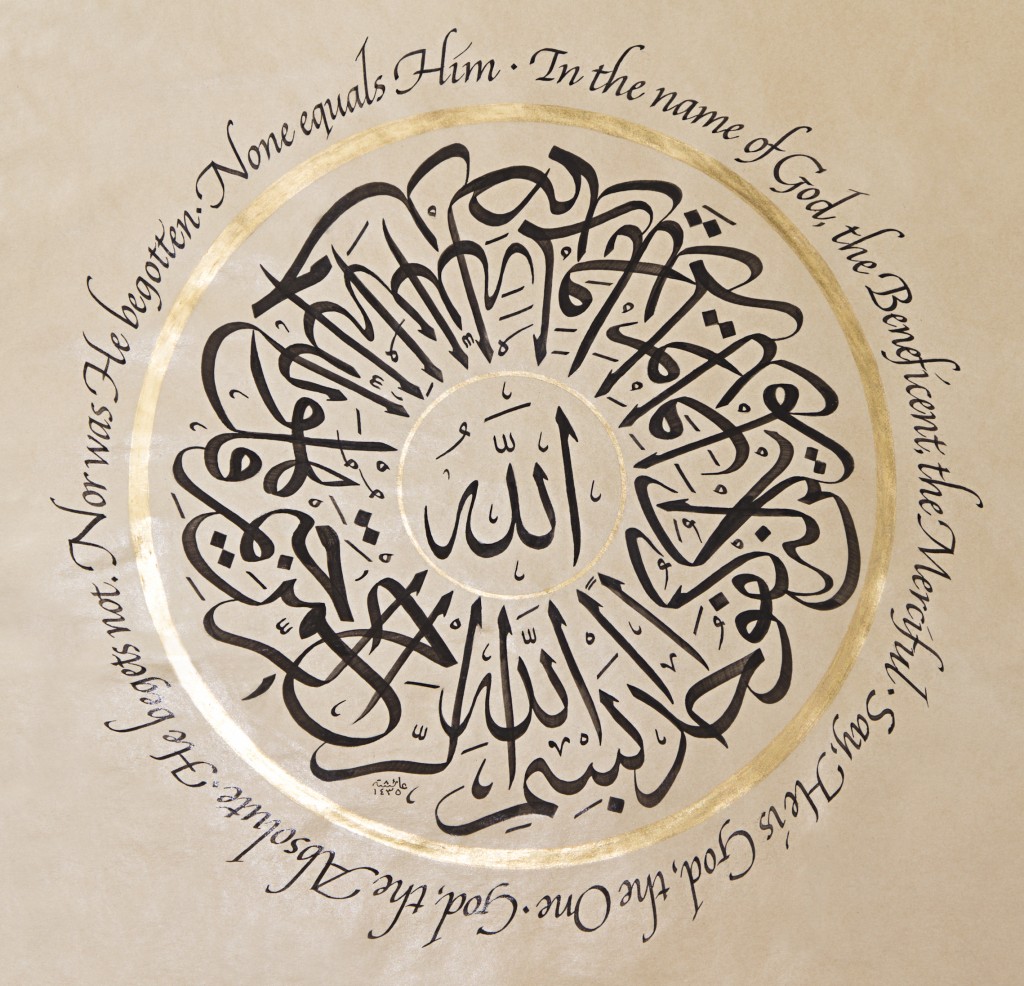 In the name of God, the Beneficent, the Merciful. Say, He is God, the One · God, the Absolute. He begets not. Nor was He begotten. None equals Him ·
بسم الله الرحمن الرحيم قل هو الله أحد الله الصمد لم يلد ولم يولد ولم يكن له كفوا أحد
اللّٰهُ
عائشة
١٤٣٥